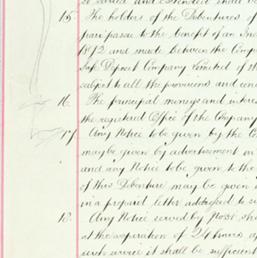 15. The holders of the Debentures of
pari passu to the benefit of an Ind
and made between the Comp
Safe Deposit Company Limited of th
subject to all the provisions and con
16. The principal moneys and interes
the registered Office of the Company
17. Any Notice to be given by the Co
may be given by advertisement in
and any Notice to be given to the
of this Debenture may be given
in a prepaid letter addressed to su
18. Any Notice served by Post sh
at the expiration of 24 hours af
such service it shall be sufficient